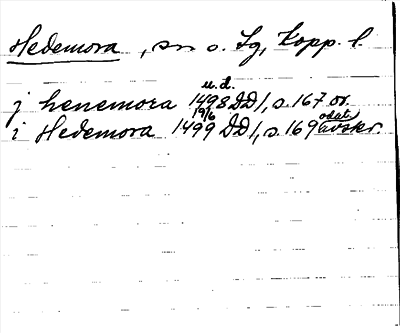 Hedemora, sn o. Lg, Kopp. l.
u.d.
j henemora 1498 DD 1, s. 167 or.
19/6 odat.
i Hedemora 1499 DD 1, s. 169 avskr.